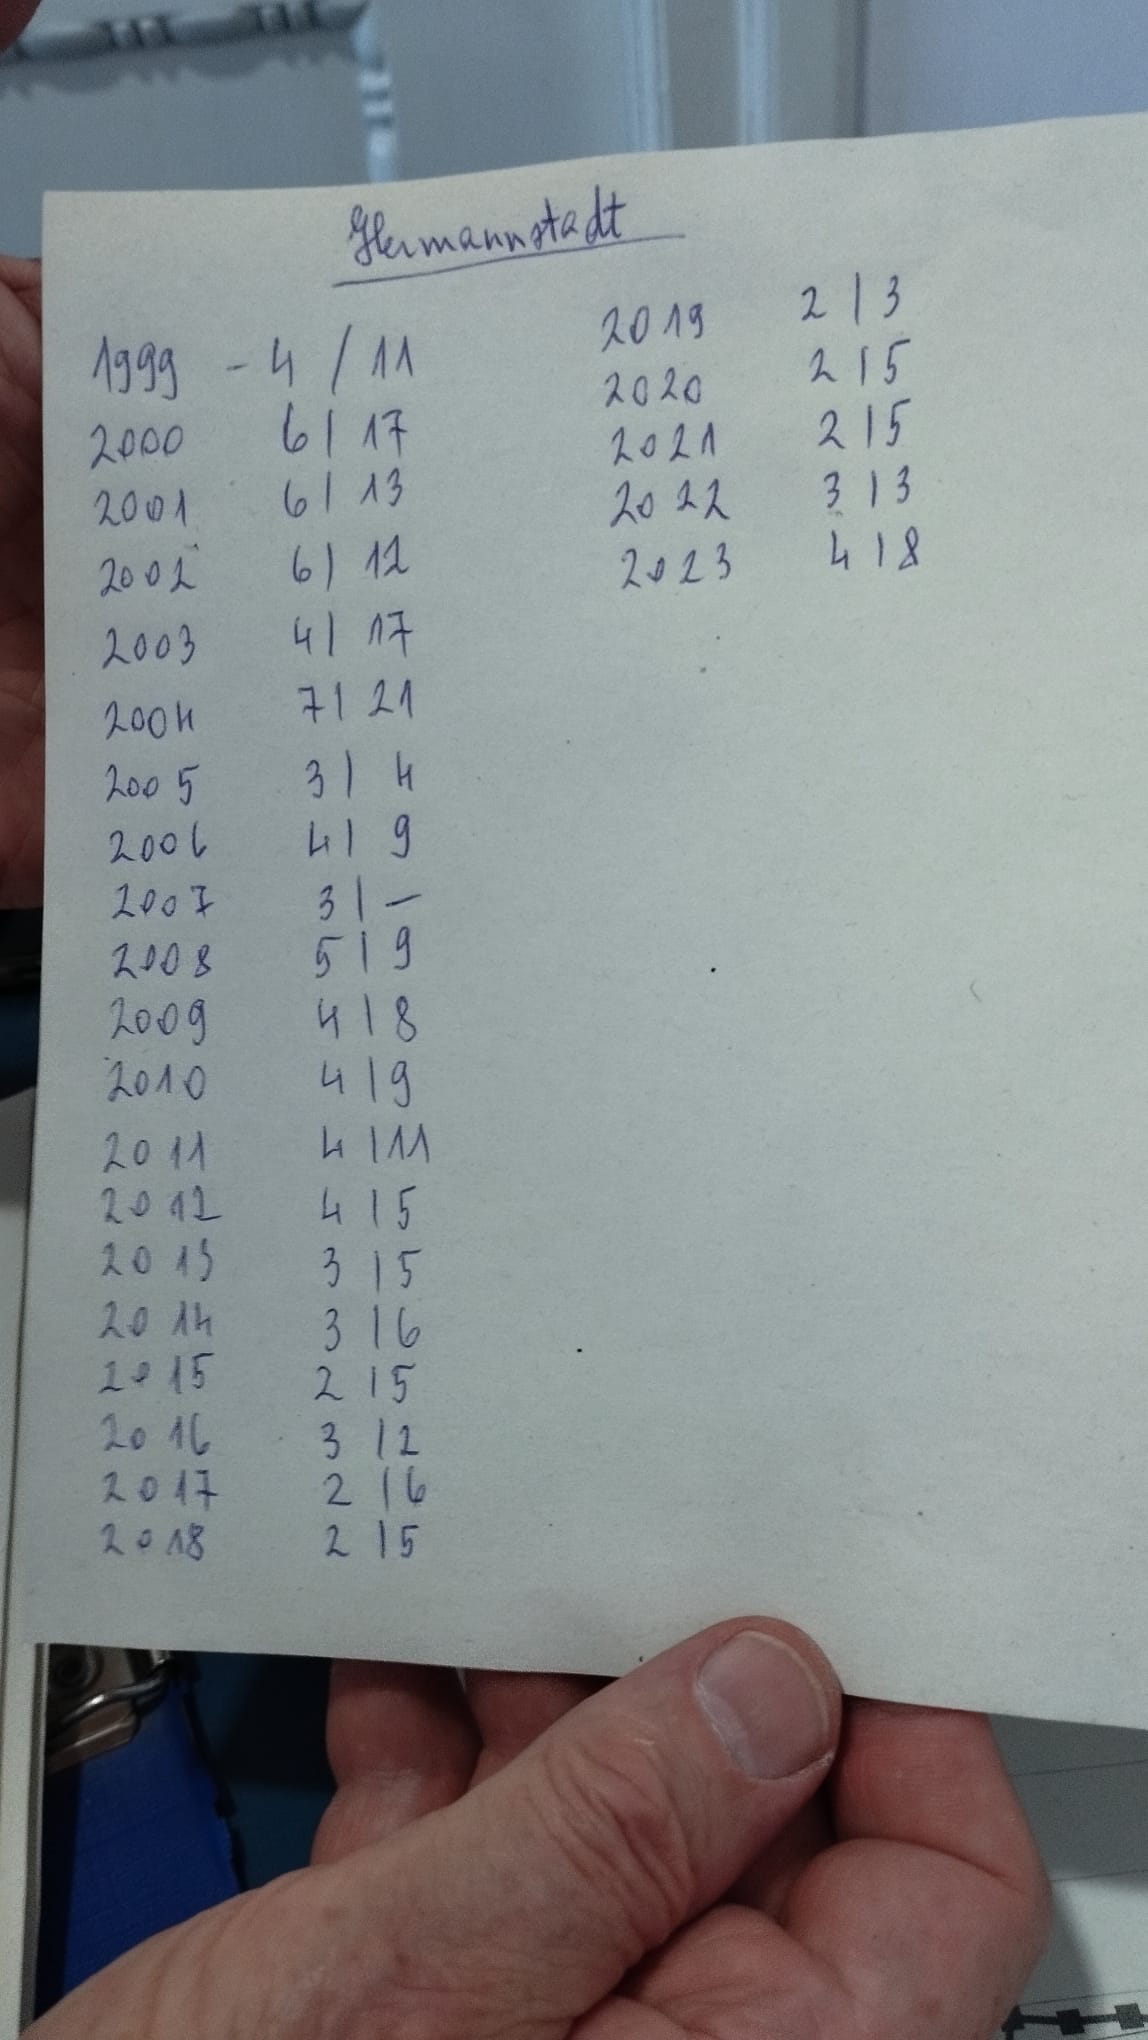 Hermannstadt
1999 - 4 / 11
2000 6 | 17
2001 6 | 13
2002 6 | 12
2003 4 | 17
2004 7 | 21
2005 3 | 4
2006 4 | 9
2007 3 | –
2008 5 | 9
2009 4 | 8
2010 4 | 9
2011 4 | 11
2012 4 | 5
2013 3 | 5
2014 3 | 6
2015 2 | 5
2016 3 | 2
2017 2 | 6
2018 2 | 5
2019 2 | 3
2020 2 | 5
2021 2 | 5
2022 3 | 3
2023 4 | 8